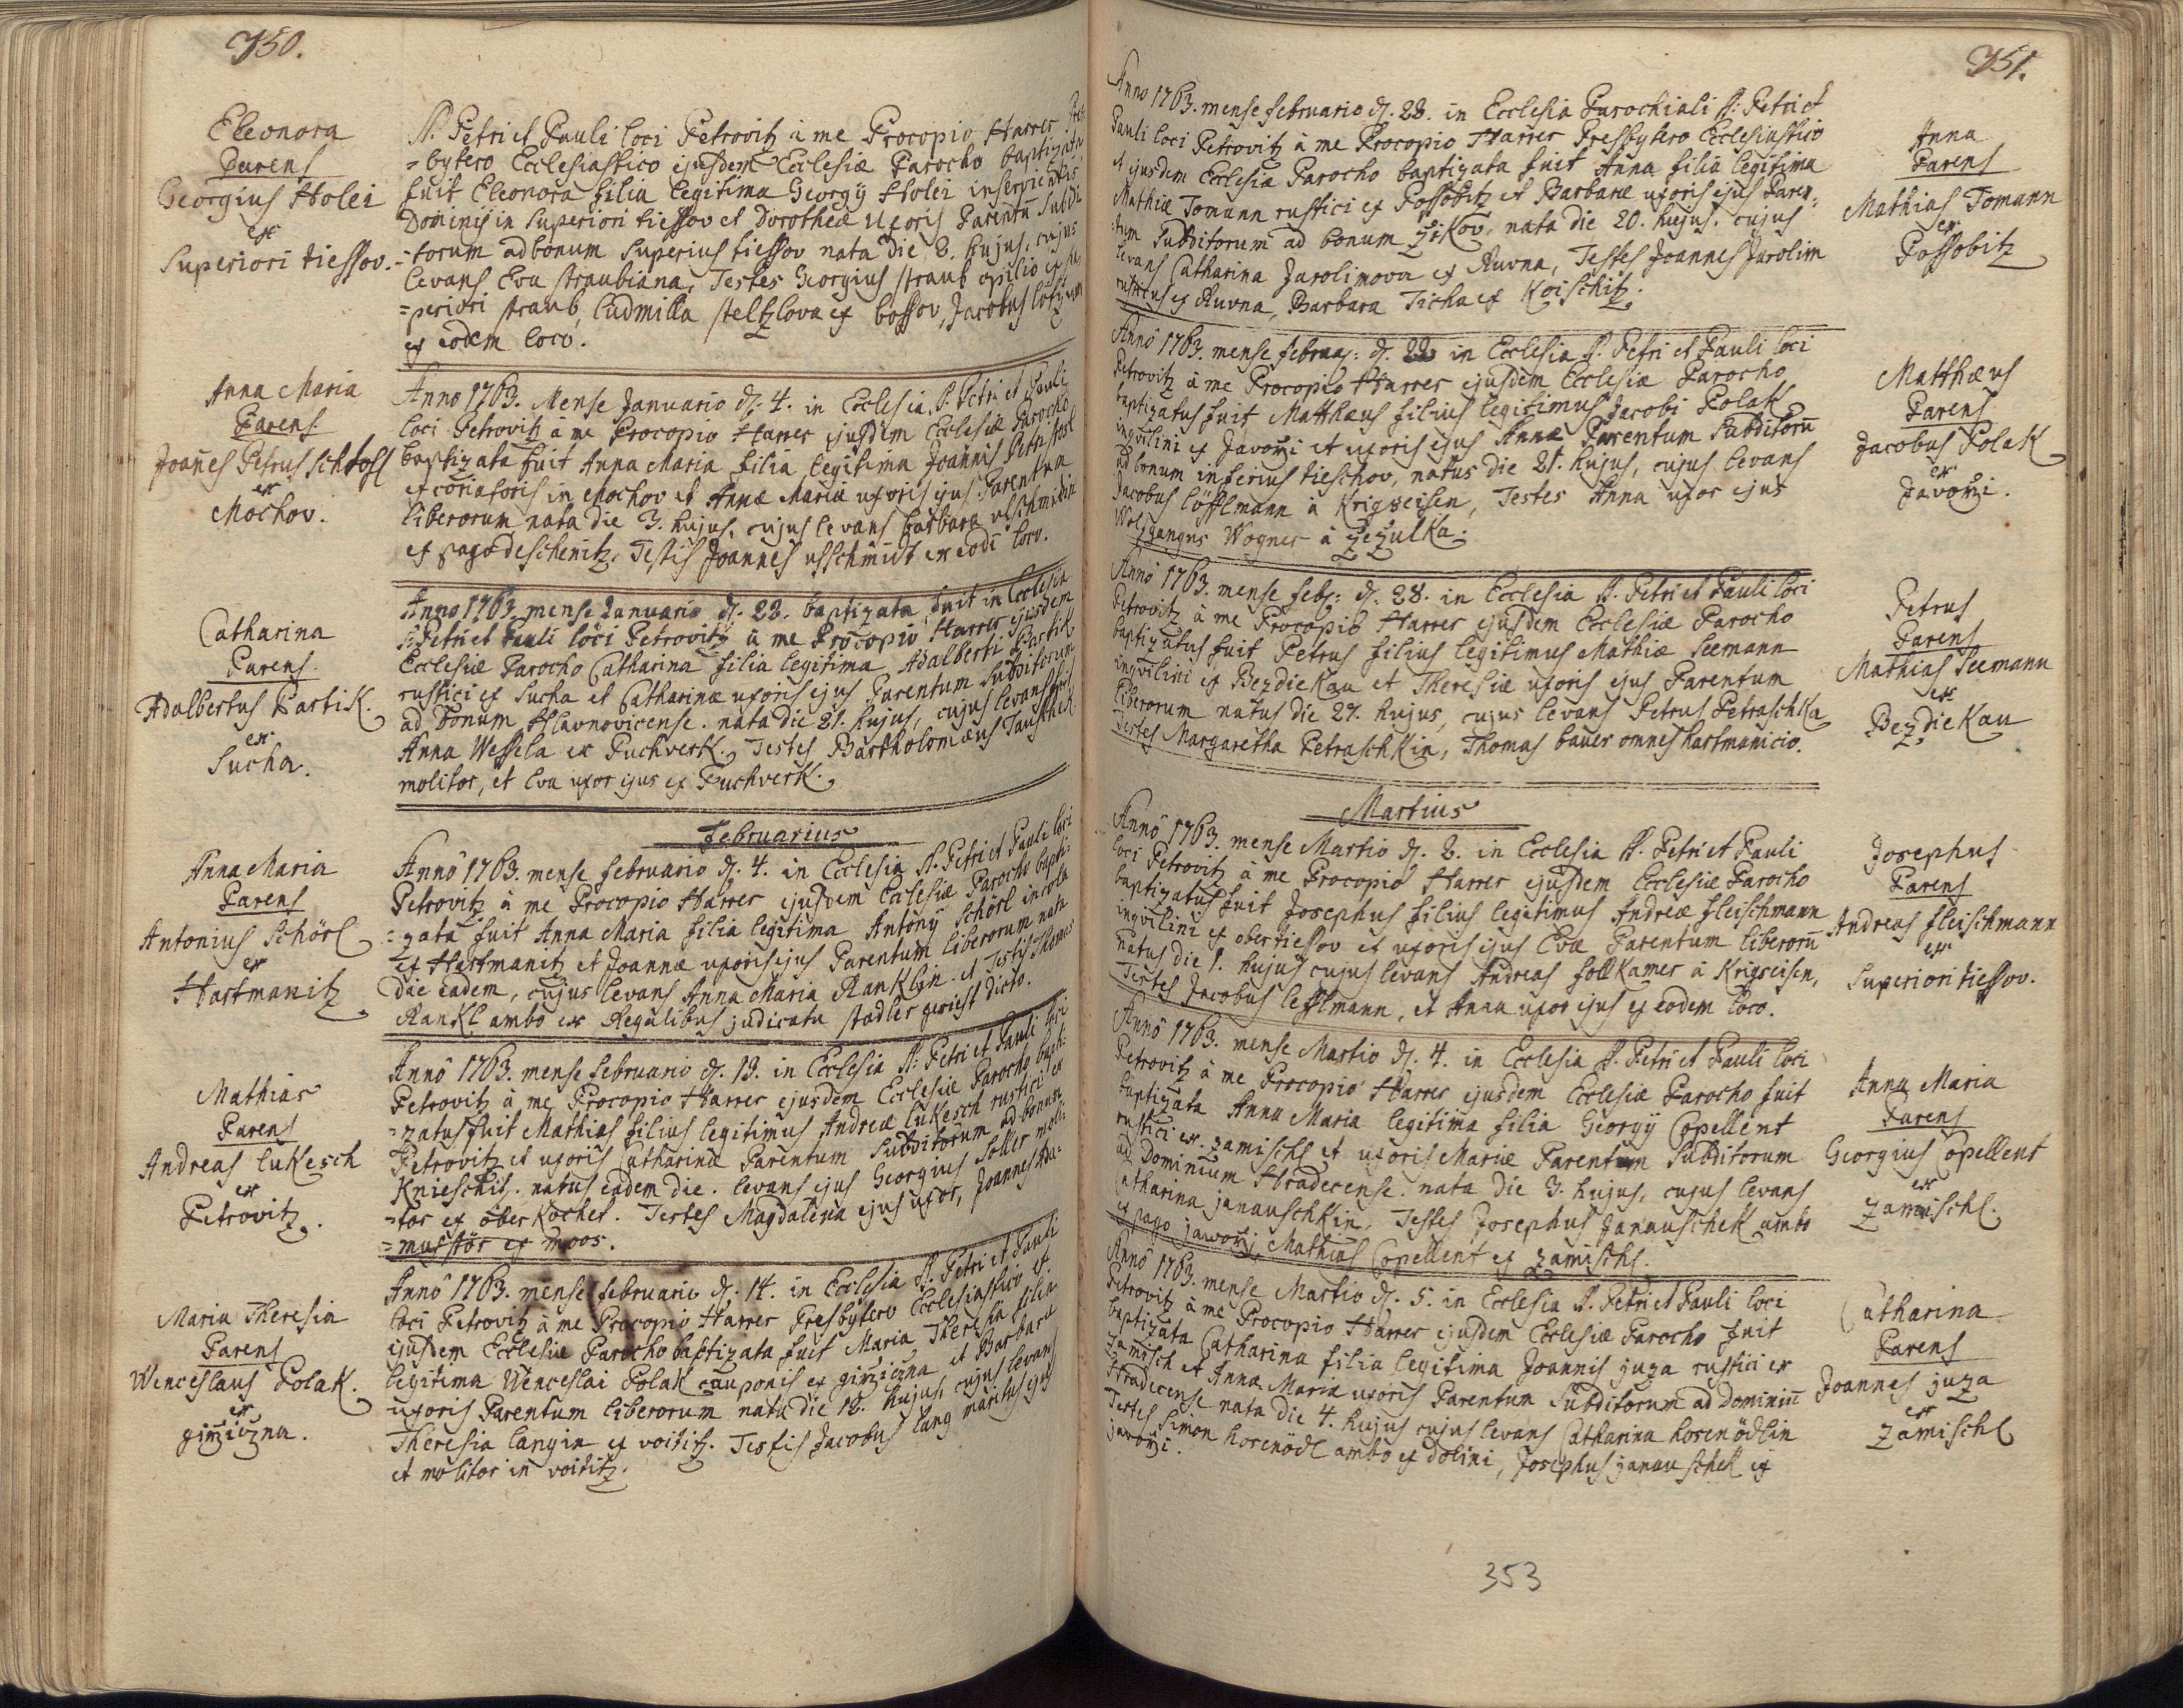 750.
Eleonora
Parens
Georgius Holei
ex
Superiori tiessov.
S. Petri et Pauli loci Petrovitz à me Procopio Harrer Pres-
=bytero Ecclesiastico ejusdem Ecclesiæ Parocho baptizata
fuit Eleonora filia legitima Georgÿ Holei inservientis
Dominis in Superiori tiessov et Dorotheæ Uxoris Parentū Subdi
=torum ad bonum Superius tiessov nata die 2. hujus, cujus
levans Eva straubiana, Testes Georgius straub opilio ex su
=periori straub, Ludmilla steltzlova ex bossov, Jacobus
ex eodem loco.
Anna Maria
Parens
Joañes Petrus Schtosl
ex
Mochov.
Anno 1763. Mense Januario d. 4. in Ecclesia S. Petri et Pauli
loci Petrovitz à me Procopio Harrer ejusdem Ecclesiæ Parocho
baptizata fuit Anna Maria filia legitima Joannis Petri stosl
excoriatoris in Mochov et Annæ Mariæ uxoris ejus Parentum
liberorum nata die 3. hujus, cujus levans barbara ulschmidin
ex pago deschenitz, Testis Joannes ulschmidt ex eodē loco.
Catharina
Parens
Adalbertus Partik.
ex
Sucha.
Anno 1763. mense Januario d. 22. baptizata fuit in Ecclesia
S. Petri et Pauli loci Petrovitz à me Procopio Harrer ejusdem
Ecclesiæ Parocho Catharina filia legitima Adalberti Partik
rustici ex Sucha et Catharinæ uxoris ejus Parentum Subditorum
ad bonum Hlavnovicense. nata die 21. hujus, cujus levans fuit
Anna Wessela ex Puchverk. Testes Bartholomæus Tauschek
molitor, et Eva uxor ejus ex Puchverk.
Februarius
Anna Maria
Parens
Antonius Schörl
ex
Hartmanitz
Annô 1763. mense februario d. 4. in Ecclesia S. Petri et Pauli loci
Petrovitz à me Procopio Harrer ejusdem Ecclesiæ Parocho bapti-
=zata fuit Anna Maria filia legitima Antonÿ Schörl incola
ex Hartmanitz et Joannæ uxoris ejus Parentum liberorum nata
die eadem, cujus levans Anna Maria Ranklin. et Testis Thomas
Rankl ambo ex Regalibus judicatu stadler gericht dicto.
Mathias
Parens
Andreas Lukesch
ex
Petrovitz.
Annô 1763. mense februario d. 13. in Ecclesia S. Petri et Pauli loci
Petrovitz à me Procopio Harrer ejusdem Ecclesiæ Parocho bapti-
=zatus fuit Mathias filius legitimus Andreæ Lukesch rustici ex
Petrovitz et uxoris Catharinæ Parentum Subditorum ad bonum
Knieschitz. natus eadem die. levans ejus Georgius Soller moli-
=tor ex ober Kochet. Testes Magdalena ejus uxor, Joannes Ha-
=mus stör ex moos.
Maria Theresia
Parens
Wenceslaus Polak.
ex
gimiczna.
Annô 1763. mense februario d. 14. in Ecclesia S. Petri et Pauli
loci Petrovitz à me Procopio Harrer Presbytero Ecclesiastico et
ejusdem Ecclesiæ Parocho baptizata fuit Maria Theresia filia
legitima Wenceslai Polak cauponis ex gimiczna et Barbara
uxoris Parentum liberorum nata die 13. hujus, cujus levans
Theresia langin ex voititz. Testis Jacobus lang maritus ejus
et molitor in voititz.
751.
Anno 1763. mense februario d. 28. in Ecclesia Parochiali S: Petri et
Pauli loci Petrovitz à me Procopio Harrer Presbytero Ecclesiastico
et ejusdem Ecclesiæ Parocho baptizata fuit Anna filia legitima
Mathiæ Tomann rustici ex Possobitz et Barbaræ uxoris ejus Paren:
:tum Subditorum ad bonum Zikov, nata die 20. hujus. cujus
levans Catharina Jarolimova ex Ruvna, Testes Joannes Jarolim
rusticus ex Ruvna, Barbara Ticha ex Koischitz.
Anna
Parens
Mathias Tomann
ex
Possobitz
Annô 1763. mense februa: d. 22 in Ecclesia S. Petri et Pauli loci
Petrovitz à me Procopio Harrer ejusdem Ecclesiæ Parocho
baptizatus fuit Matthæus filius legitimus Jacobi Polak
inqvilini ex Javorzi et uxoris ejus Annæ Parentum Subditorū
ad bonum inferius tieschov, natus die 21. hujus, cujus levans
Jacobus löfflmann à Krigseisen, Testes Anna uxor ejus
Wolfgangus Wogner à Zezulka.
Matthæus
Parens
Jacobus Polak
ex
Javorzi.
Annô 1763. mense feb: d. 28. in Ecclesia S. Petri et Pauli loci
Petrovitz à me Procopio Harrer ejusdem Ecclesiæ Parocho
baptizatus fuit Petrus filius legitimus Mathiæ Seemann
inqvilini ex Bezdiekau et Theresiæ uxoris ejus Parentum
liberorum natus die 27. hujus, cujus levans Petrus Petraschka
Testes Margaretha Petraschkin, Thomas bauer omnes hartmanicio.
Petrus
Parens
Mathias Seemann
ex
Bezdiekau
Martius
Annô 1763. mense Martio d. 2. in Ecclesia S. Petri et Pauli
loci Petrovitz à me Procopio Harrer ejusdem Ecclesiæ Parocho
baptizatus fuit Josephus filius legitimus Andreæ fleischmann
inqvilini ex obertiessov et uxoris ejus Evæ Parentum liberorū
natus die 1. hujus cujus levans Andreas follkamer à Krigseisen,
Testes Jacobus lefflmann, et Anna uxor ejus ex eodem loco.
Josephus
Parens
Andreas fleischmann
ex
Superiori tiessov.
Annô 1763. mense Martio d. 4. in Ecclesia S. Petri et Pauli loci
Petrovitz à me Procopio Harrer ejusdem Ecclesiæ Parocho fuit
baptizata Anna Maria legitima filia Georgÿ Copellent
rustici ex zamischl et uxoris Mariæ Parentum Subditorum
ad Dominium Hradecense. nata die 3. hujus, cujus levans
Catharina janauschkin, Testes Josephus Janauschek ambo
ex pago javorzi, Mathias Copellent ex zamischl.
Anna Maria
Parens
Georgius Copellent
ex
zamischl.
Annô 1763. mense Martio d. 5. in Ecclesia S. Petri et Pauli loci
Petrovitz à me Procopio Harrer ejusdem Ecclesiæ Parocho fuit
baptizata Catharina filia legitima Joannis juza rustici ex
Zamisch et Annæ Mariæ uxoris Parentum Subditorum ad Dominiū
Hradecense nata die 4. hujus cujus levans Catharina horenödlin
Testes Simon horenödl ambo ex dolini, Josephus janauschek ex
javorzi.
Catharina
Parens
Joannes juza
ex
zamischl
353